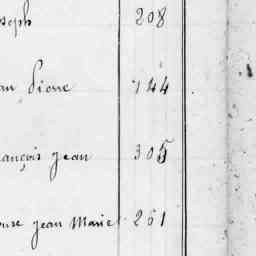 seph 208
an Pierre 144
rançois Jean 305
ouse Jean Marie 261